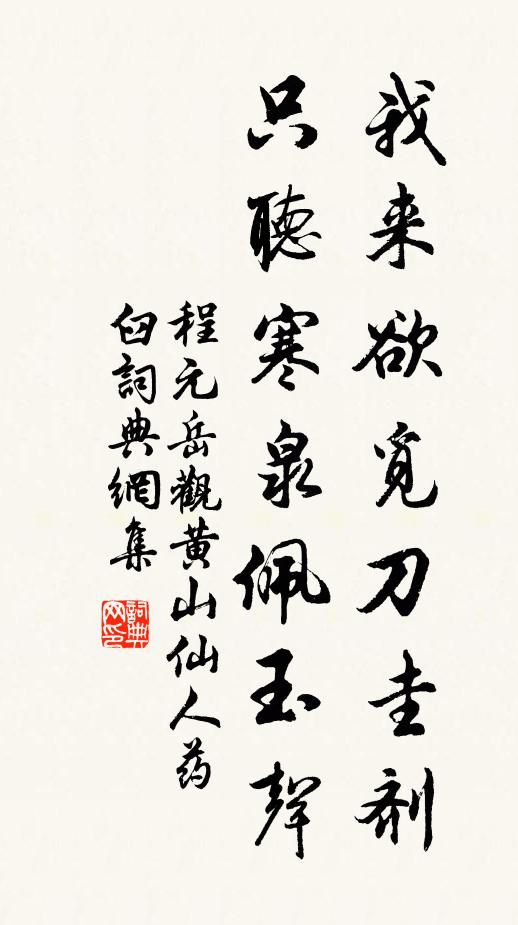 我来欲觅刀圭剂
只聽寒泉佩玉聲
程元岳觀黄山仙人药
臼詞典網集
詞典網印